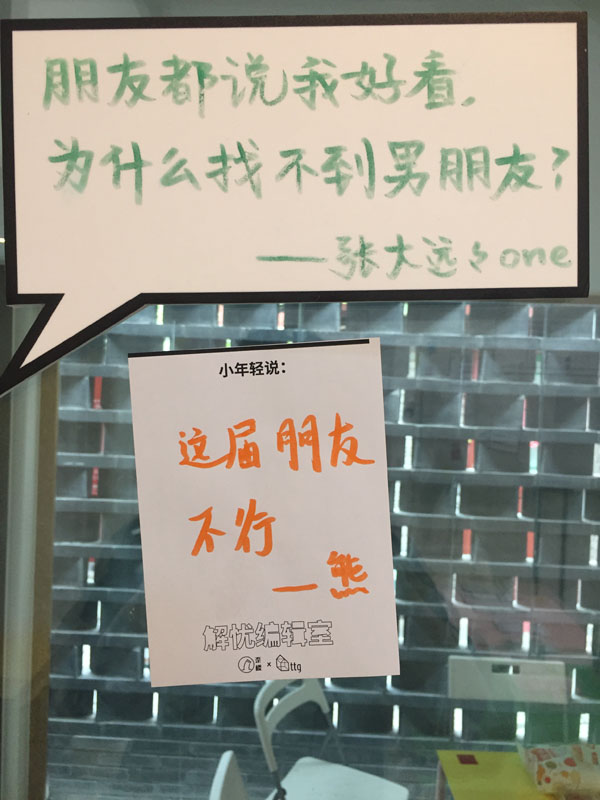 朋友都说我好看，
为什么找不到男朋友？
——张大远々one
小年轻说：
这届朋友
不行
—熊
解忧编辑室
×
ttg